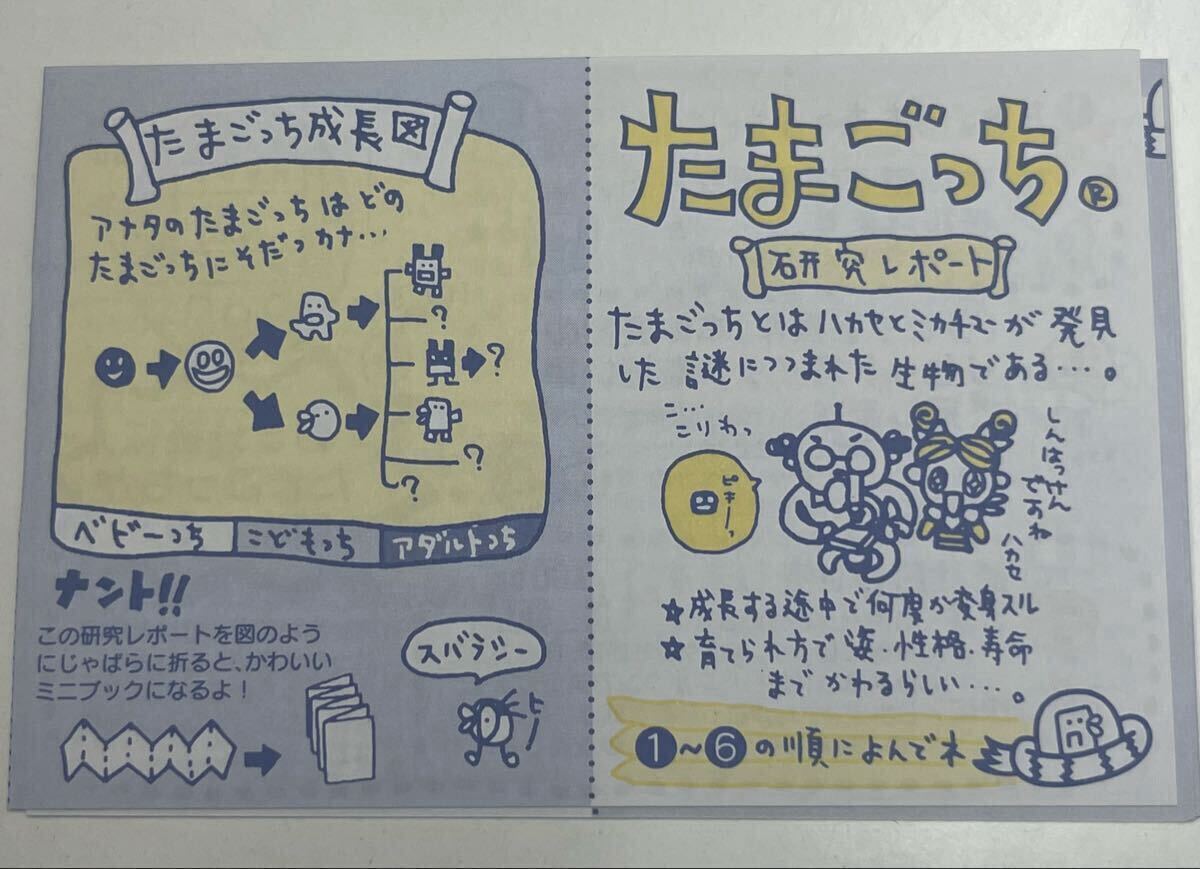 たまごっち成長図
アナタのたまごっちはどの
たまごっちにそだつカナ…
?
?
?
?
ベビーっち
こどもっち
アダルトっち
ナント!!
この研究レポートを図のよう
にじゃばらに折ると、かわいい
ミニブックになるよ!
スバラシー
たまごっち®
研究レポート
たまごっちとはハカセとミカチューが発見
した謎につつまれた生物である…。
こ…
こりわっ
ピキーっ
しんはっけん
ですね
ハカセ
☆成長する途中で何度か変身スル
☆育てられ方で姿・性格・寿命
までかわるらしい…。
1〜6の順によんでネ